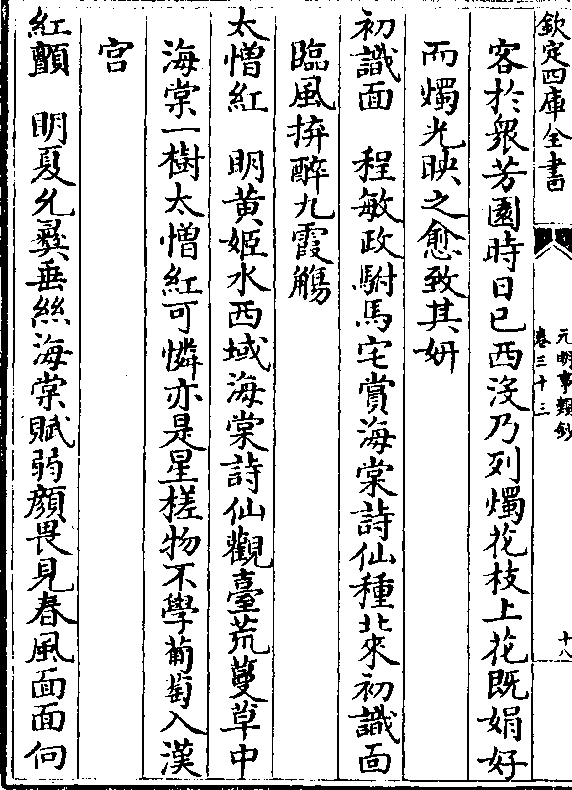 欽定四庫全書
元明事類鈔
卷三十三
十八
客於衆芳園時日已西沒乃列燭花枝上花既娟好
而燭光映之愈致其妍
初識面　程敏政駙馬宅賞海棠詩仙種北來初識面
臨風拚醉九霞觴
太憎紅　明黄姬水西域海棠詩仙觀臺荒蔓草中
海棠一樹太憎紅可憐亦是星槎物不學葡萄入漢
宫
紅顫　明夏允彞垂絲海棠賦弱顔畏見春風面面何